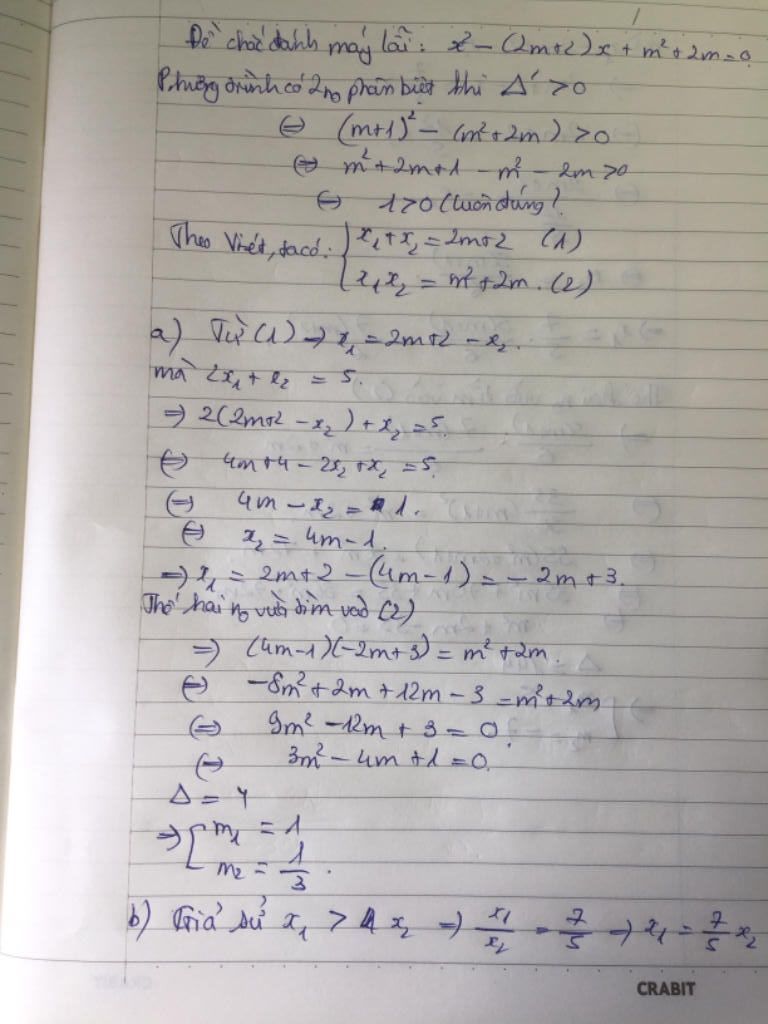 Đề chắc đánh máy lỗi: x² - (2m+2)x + m² + 2m = 0
Phương trình có 2 no phân biệt khi Δ' > 0
⇔ (m+1)² - (m² + 2m) > 0
⇔ m² + 2m + 1 - m² - 2m > 0
⇔ 1 > 0 (luôn đúng)
Theo Viét, ta có: { x₁ + x₂ = 2m+2 (1)
x₁x₂ = m² + 2m. (2)
a) Từ (1) ⇒ x₁ = 2m+2 - x₂.
mà 2x₁ + x₂ = 5.
⇒ 2(2m+2 - x₂) + x₂ = 5.
⇔ 4m+4 - 2x₂ + x₂ = 5.
⇔ 4m - x₂ = 1.
⇔ x₂ = 4m - 1.
⇒ x₁ = 2m+2 - (4m-1) = -2m + 3.
Thế hai no vừa tìm vào (2)
⇒ (4m-1)(-2m+3) = m² + 2m.
⇔ -8m² + 2m + 12m - 3 = m² + 2m
⇔ 9m² - 12m + 3 = 0.
⇔ 3m² - 4m + 1 = 0.
Δ = 4
⇒ [ m₁ = 1
m₂ = 1/3.
b) Giả sử x₁ > x₂ ⇒ x₁/x₂ = 7/5 ⇒ x₁ = 7/5 x₂
CRABIT